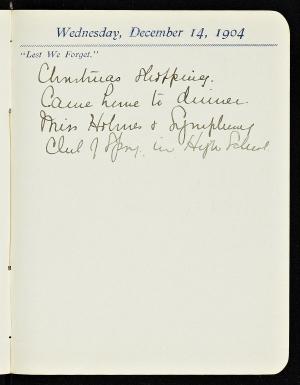 Wednesday, December 14, 1904
"Lest We Forget."
Christmas shopping.
Came home to dinner.
Miss Holmes & Symphony
Club of Spng. in High School